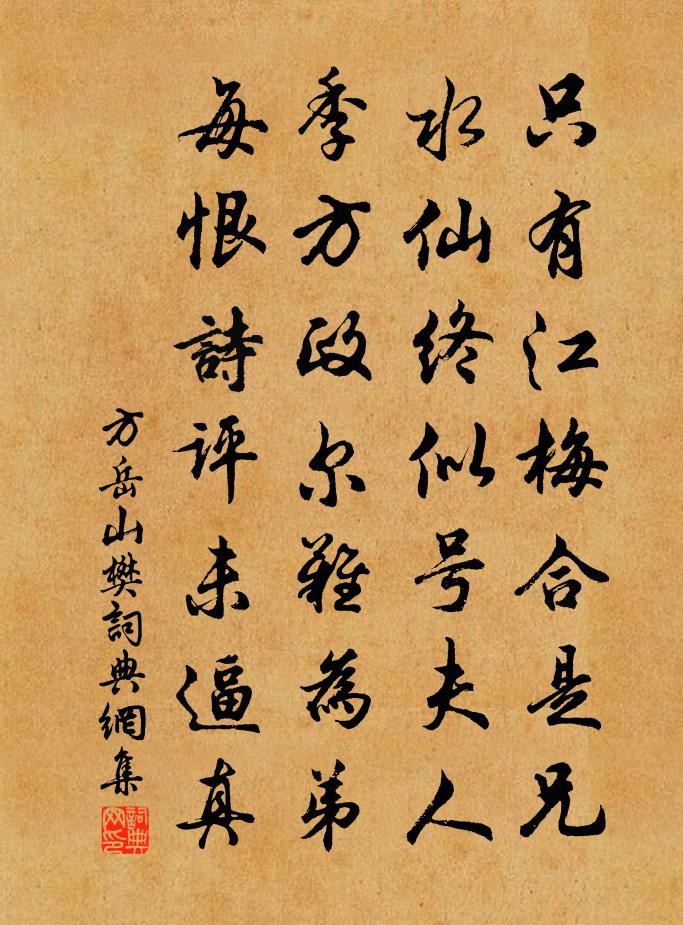 只有江梅合是兄
水仙终似号夫人
季方政尔難為弟
每恨詩评未逼真
方岳山樊詞典網集
詞典网印